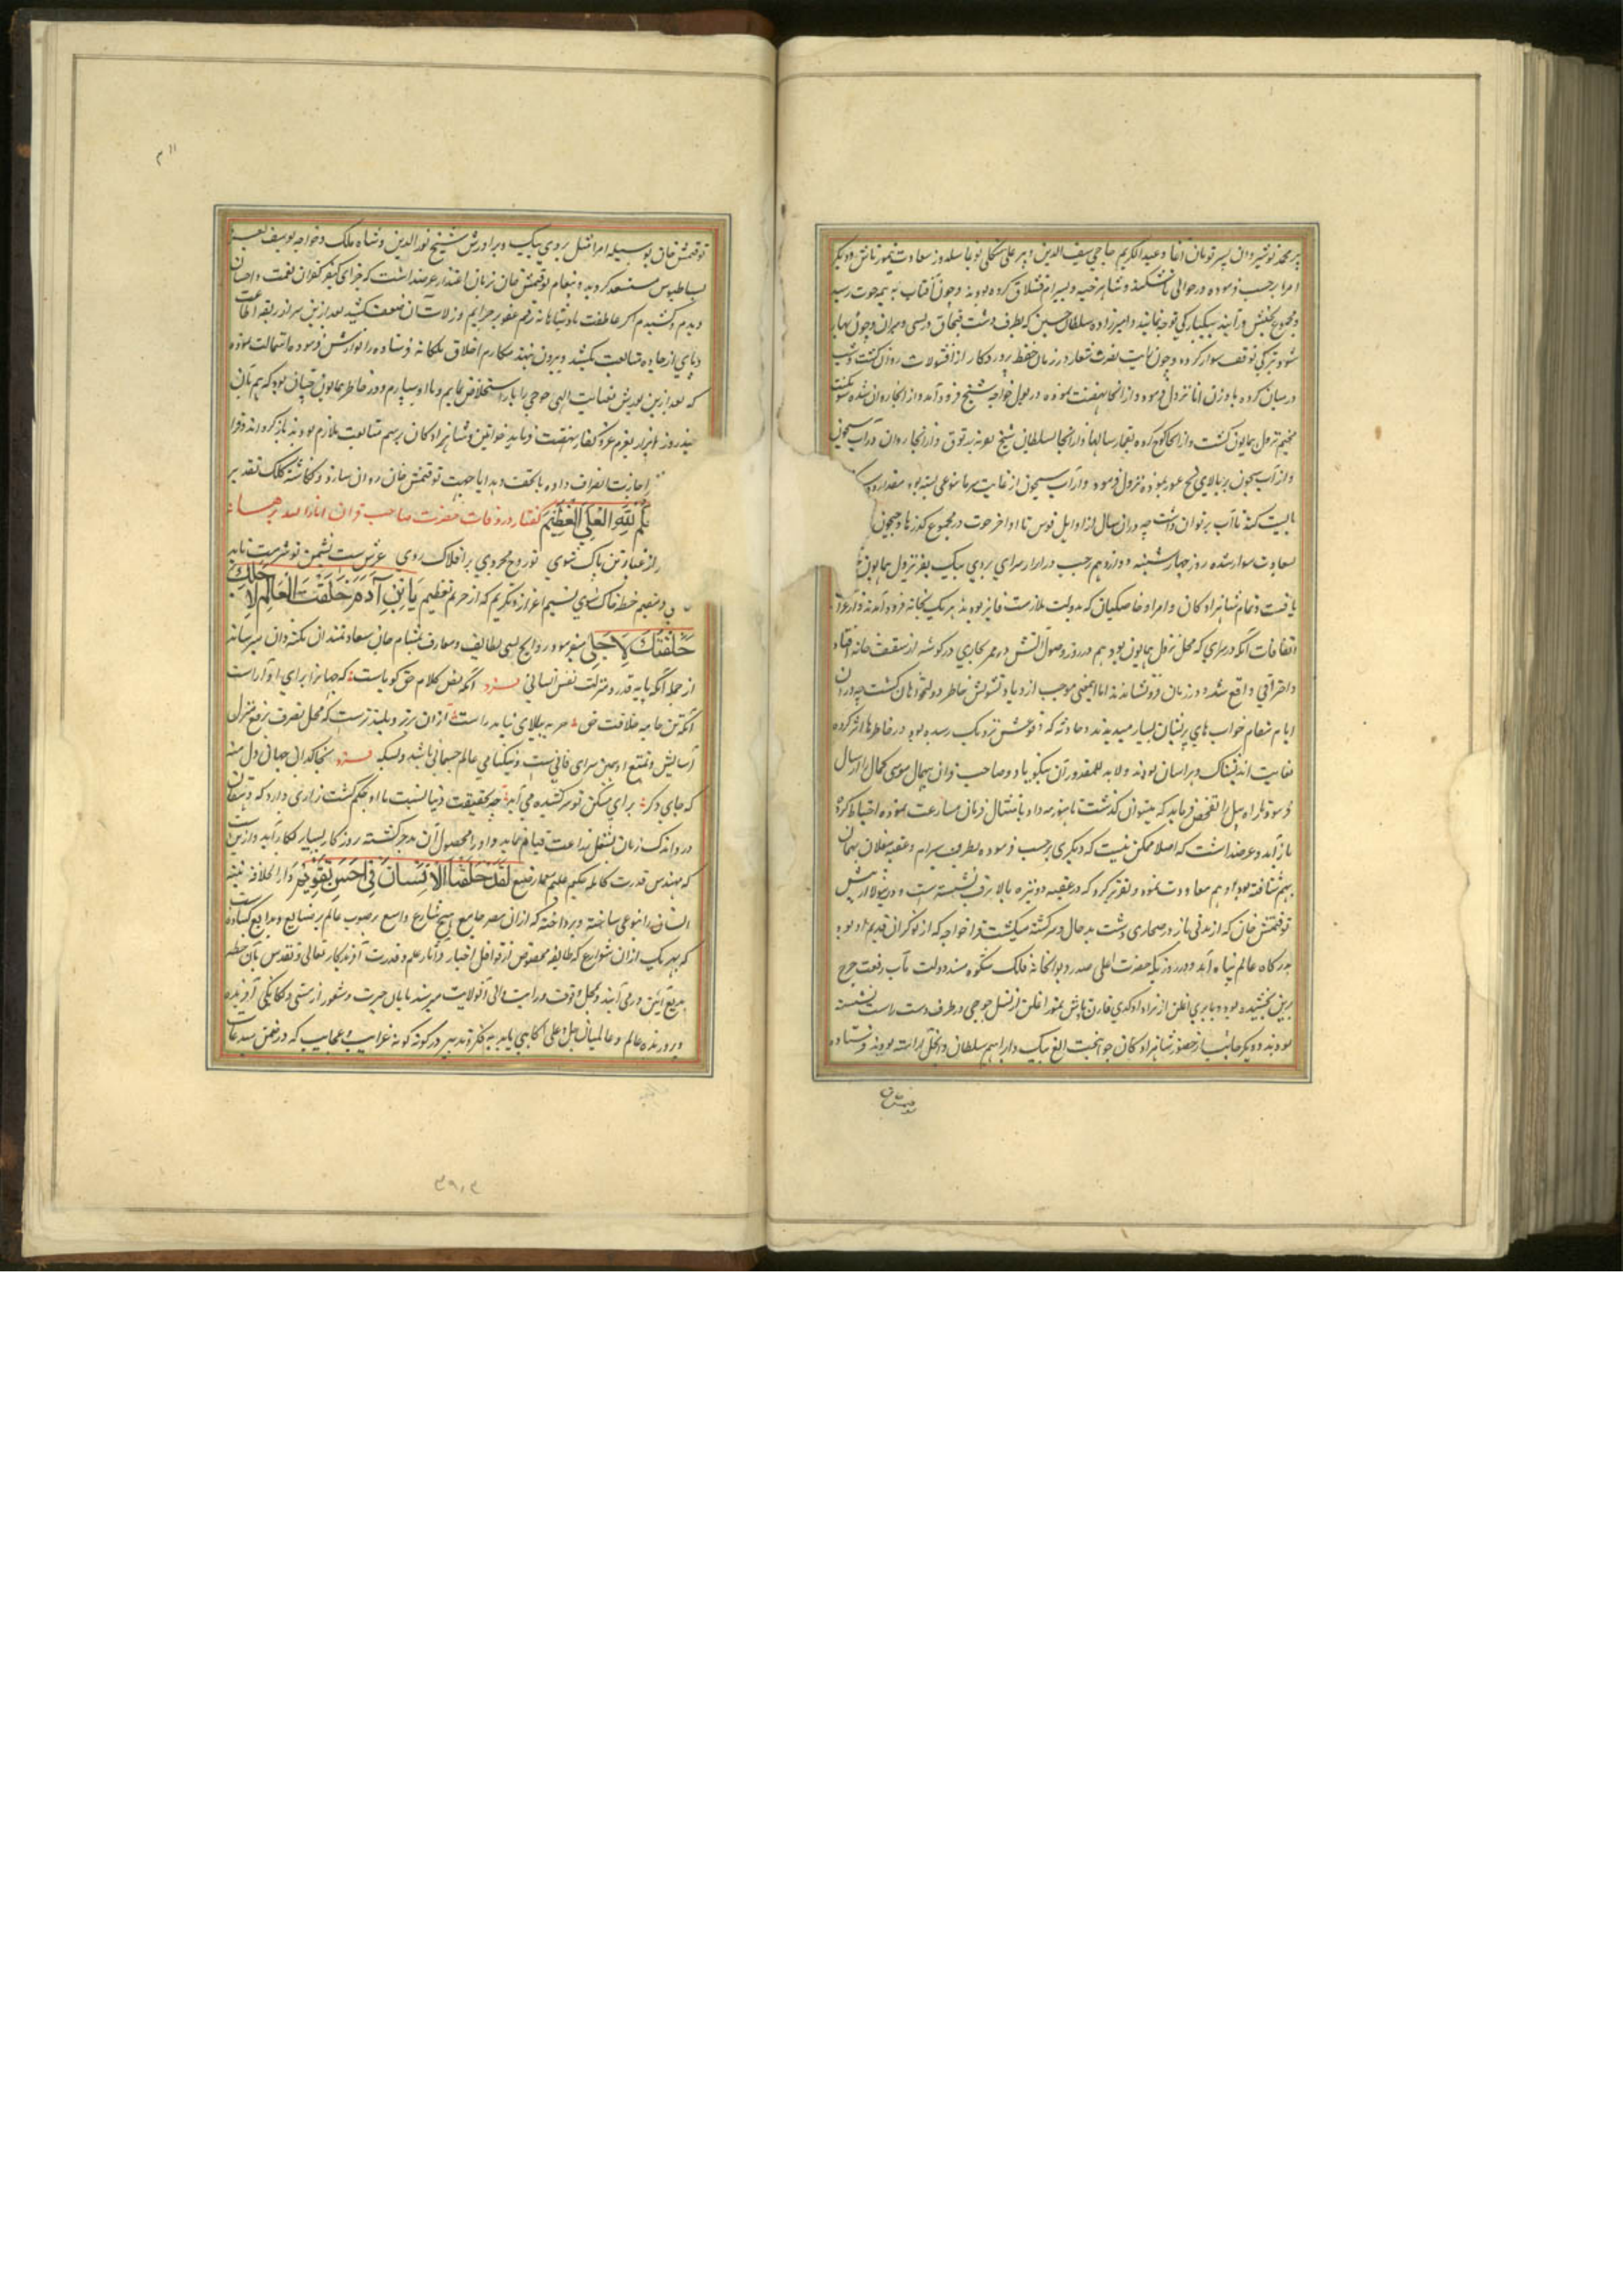 پیر محمد نوشیروان پسر تومان آغا و عبدالکریم حاجی سیف الدین و پیر علی منکلی بوغا سلدوز سعادت تیمورتاش و دیگر
امرا برحسب فرموده در حوالی تاشکند و شاهرخیه و سیرام قشلاق کرده بودند و چون آفتاب به نیمه حوت رسد
و مجموع بجنبش درآیند بیکبارگی توجه نمایند و امیرزاده سلطان حسین که بطرف دشت قبچاق درلسی و صبران و چون بهار
شود بی توقف سوار کرده و چون رایت نصرت شعار در زمان حفظ پروردکار از اقسولات روان کشت و شب
در میان کرده باوزن اتا نزول فرمود و از انجا نهضت نموده در بول خواجه شیخ فرود آمد و از انجا روان شده سوتکنت
مخیم نزول همایون کشت و از انجا کوچ کرده و از انجا بسلطان شیخ بعونه به توق و از انجا روان در آب سیحون
و از آب سیحون بر بالای یخ عبور نموده نزول فرمود و از آب سیحون از غایت سرما بنوعی بسته بود مقدار دو
بایست کند تا آب برتوان داشت چه در ان سال از اوایل قوس تا اواخر حوت در مجموع کذرها و جیحون
بسعادت سوار شده روز چهارشنبه دوازدهم رجب در اترار سرای بردی بیک بفر نزول همایون
یافت و تمام شاهزادکان و امرا و خاصکیان که بدولت ملازمت فایز بودند هر یک بخانه فرود آمدند و از غرایب
اتفاقات آنکه در سرای که محل نزول همایون بود هم در روز وصول آتش در ممر بخاری در کوشه از سقف خانه افتاد
و احتراقی واقع شد و در زمان فرو نشاندند اما این معنی موجب ازدیاد تشویش خاطر دولتخواهان کشت چه در ان
ایام شعام خواب های پریشان بسیار میدیدند و حادثه که وقوعش نزدیک رسیده بود در خاطرها اثر کرده
بغایت اندیشناک و هراسان بودند ولا به للمقدور آن نیکو یاد و صاحب قران بیهمال موسی کمال را ارسال
فرمود تا راه سیل را تفحص نماید که میتوان کذشت تا هنوز مه داد بامتثال فرمان مسارعت نموده احتیاط کرده
باز آمد و عرضداشت که اصلا ممکن نیست که دیکری برحسب فرموده بطرف سیرام و عقبه بیغلان بهمان
بهم شتافته بود او هم معاودت نموده و تقریر کرد که در عقبه دو نیزه بالا برف نشسته است و در نیولا از پیش
توقتمش خان که از مدتی باز در صحاری دشت بدحال و سرکشته میکشت قراخواجه که از نوکران قدیم او بود
بدرگاه عالم پناه آمد و در روزیکه حضرت اعلی صدر دیوانخانه فلک شکوه مسند دولت مآب رفعت چرخ
برین بخشیده بود و تایزی اغلن از نژاد اوکدی قاان و باش تیمور اغلن از نسل جوجی در طرف دست راست نشسته
بودند و دیکر جانب از حضور شاهزادکان جوانبخت الغ بیک و ابراهیم سلطان و ایجل آراسته بودند فرستاده
توقتمش خان بوسیله امرا مثل بردی بیک و برادرش شیخ نورالدین و شاه ملک و خواجه یوسف بعز
بساط بوس مستسعد کردیده پیغام توقتمش خان بزبان اعتذار عرضداشت که جزای کیفر کفران نعمت و احسان
دیدم و کشیدم اکر عاطفت پادشاهانه رقم عفو بر جرایم و زلات آن ضعیف کشید بعد ازین سر از ربقه اطاعت
و پای از جاده متابعت نکشد و بیرون ننهد مکارم اخلاق ملکانه فرستاده را نوازش فرمود و استمالت نموده
که بعد ازین یورش بعنایت الهی جوجی را باز استخلاص نمایم و باو سپارم و در خاطر همایون چنان بود که هم از ان
چند روز از اترار بعزم غزو کفار نهضت فرماید خواتین و شاهزادکان برسم متابعت ملازم بودند باز کردانند و قرا
را اجازت انصراف داده با تحف و هدایا جهت توقتمش خان روان سازد و نکاشته کلک تقدیر
بالله العلی العظیم گفتار در وفات حضرت صاحب قران انار الله برهانه
از غبار تن پاک شوی تو روح مجردی بر افلاک روی عرش ست نشیمن تو شرمت ناید
ی و مقیم خطه خاک شوی نسیم اعزاز و تکریم که از حریم تعظیم یا ابن آدم خلقت العالم لاجلک
خلقتک لاجلی میفرمود روایح لطایف و معارف بمشام جان سعادتمندان نکته دان میرساند
از جمله آنکه پایه قدر و منزلت نفس انسانی فرد آنکه نص کلام حق گویاست که جهانرا برای او آراست
آنکه تن جامه خلافت حق جز به بالای نیاید راست ازان برتر و بلندترست که محل تصرف رفع منزل
آسایش و تمتع او همین سرای فانی ست و نیکنامی عالم جسمانی باشد و بسکه فرد بخاکدان جهانی دل منه
که جای دکر برای مسکن تو برکشیده می آید چه بحقیقت دنیا نسبت با او حکم کشت زاری دارد که دهقان
در و اندک زمان بشغل زراعت قیام نماید و او را محصول آن بدرج کشته روز کار بسیار بکار آید و ازین ست
که مهندس قدرت کامله حکیم علیم معمار صنع لقد خلقنا الانسان فی احسن تقویم دارا لخلافه بنیه
انسان را بنوعی ساخته و پرداخته که از ان مصر جامع پنج شارع واسع بر صوب عالم پر صنایع و بدایع کشاده ست
که بهر یک از ان شوارع که طایفه مخصوص از قوافل اخبار و آثار علم و قدرت آفریدکار تعالی و تقدس بآن خطه
بدیع آئین درمی آیند و بحل وقوف و درایت والی آن ولایت میرسند تا بآن خبرت و شعور از هستی و یکانکی آفریننده
و پرورنده عالم و عالمیان جل و علی آکاهی یابد به فکر و تدبیر در کونه کونه غرایب و عجایب که در ضمن